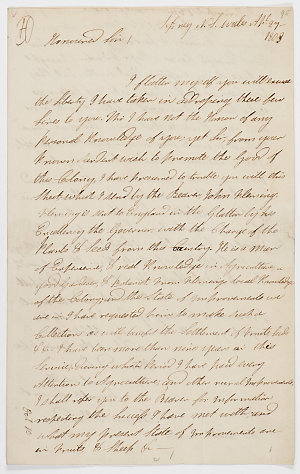 Sydney N. S. Wales Apl 27
1803
Honoured Sir!
I flatter myself you will excuse
the liberty I have taken in addressing these few
lines to you. Tho' I have not the Honor of any
Personal Knowledge of you, yet Sir from your
Known Ardent wish to promote the Good of
this Colony, I have presumed to trouble you with this
Sheet which I send by the Bearer John Fleming
Fleming is sent to England in the Glatton by his
Excellency the Governor with the Charge of the
Plants & Seed from this Country. He is a Man
of Experience, & real Knowledge in Agriculture a
good Gardener & Botanist from Fleming's local Knowledge
of the Colony and the State of Improvements we
are in. I have requested him to make such a
Collection as will benefit the Settlement of Fruits Seeds
&c. I have been more than nine years in this
Service, During which Period I have paid every
Attention to Agriculture and other rural Improvements.
I shall refer you to the Bearer for Information
respecting the success I have met with, and
what my present State of Improvements are
in Fruits & Sheep &c —